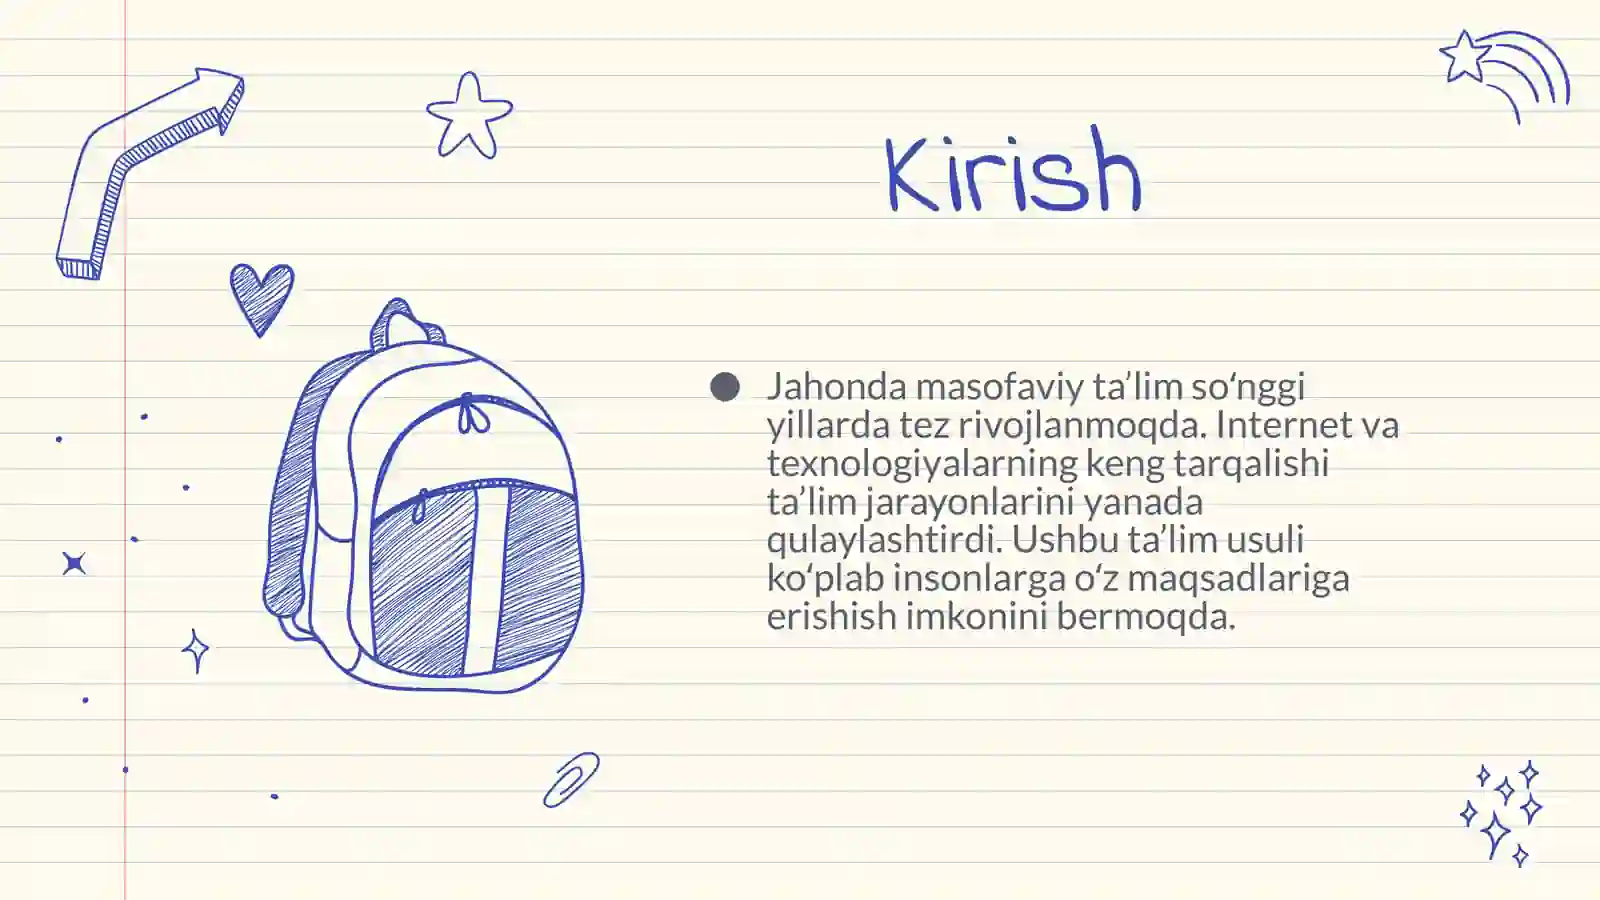 Kirish
Jahonda masofaviy ta’lim so‘nggi
yillarda tez rivojlanmoqda. Internet va
texnologiyalarning keng tarqalishi
ta’lim jarayonlarini yanada
qulaylashtirdi. Ushbu ta’lim usuli
ko‘plab insonlarga o‘z maqsadlariga
erishish imkonini bermoqda.